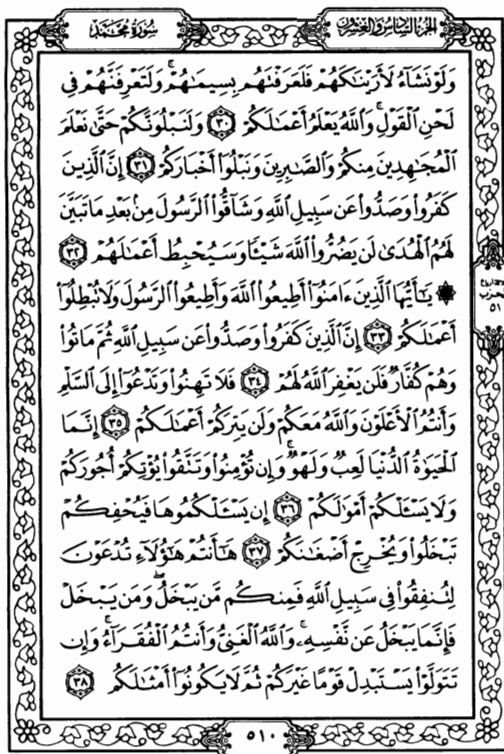 سُورَةُ مُحَمَّد
الجُزءُ السَّادِسُ وَالعِشرُونَ
وَلَوْ نَشَآءُ لَأَرَيْنَـٰكَهُمْ فَلَعَرَفْتَهُم بِسِيمَـٰهُمْ ۚ وَلَتَعْرِفَنَّهُمْ فِى
لَحْنِ ٱلْقَوْلِ ۚ وَٱللَّهُ يَعْلَمُ أَعْمَـٰلَكُمْ ٣٠ وَلَنَبْلُوَنَّكُمْ حَتَّىٰ نَعْلَمَ
ٱلْمُجَـٰهِدِينَ مِنكُمْ وَٱلصَّـٰبِرِينَ وَنَبْلُوَا۟ أَخْبَارَكُمْ ٣١ إِنَّ ٱلَّذِينَ
كَفَرُوا۟ وَصَدُّوا۟ عَن سَبِيلِ ٱللَّهِ وَشَآقُّوا۟ ٱلرَّسُولَ مِنۢ بَعْدِ مَا تَبَيَّنَ
لَهُمُ ٱلْهُدَىٰ لَن يَضُرُّوا۟ ٱللَّهَ شَيْـًٔا وَسَيُحْبِطُ أَعْمَـٰلَهُمْ ٣٢
۞ يَـٰٓأَيُّهَا ٱلَّذِينَ ءَامَنُوٓا۟ أَطِيعُوا۟ ٱللَّهَ وَأَطِيعُوا۟ ٱلرَّسُولَ وَلَا تُبْطِلُوٓا۟
أَعْمَـٰلَكُمْ ٣٣ إِنَّ ٱلَّذِينَ كَفَرُوا۟ وَصَدُّوا۟ عَن سَبِيلِ ٱللَّهِ ثُمَّ مَاتُوا۟
وَهُمْ كُفَّارٌ فَلَن يَغْفِرَ ٱللَّهُ لَهُمْ ٣٤ فَلَا تَهِنُوا۟ وَتَدْعُوٓا۟ إِلَى ٱلسَّلْمِ
وَأَنتُمُ ٱلْأَعْلَوْنَ وَٱللَّهُ مَعَكُمْ وَلَن يَتِرَكُمْ أَعْمَـٰلَكُمْ ٣٥ إِنَّمَا
ٱلْحَيَوٰةُ ٱلدُّنْيَا لَعِبٌ وَلَهْوٌ ۚ وَإِن تُؤْمِنُوا۟ وَتَتَّقُوا۟ يُؤْتِكُمْ أُجُورَكُمْ
وَلَا يَسْـَٔلْكُمْ أَمْوَٰلَكُمْ ٣٦ إِن يَسْـَٔلْكُمُوهَا فَيُحْفِكُمْ
تَبْخَلُوا۟ وَيُخْرِجْ أَضْغَـٰنَكُمْ ٣٧ هَـٰٓأَنتُمْ هَـٰٓؤُلَآءِ تُدْعَوْنَ
لِتُنفِقُوا۟ فِى سَبِيلِ ٱللَّهِ فَمِنكُم مَّن يَبْخَلُ ۖ وَمَن يَبْخَلْ
فَإِنَّمَا يَبْخَلُ عَن نَّفْسِهِۦ ۚ وَٱللَّهُ ٱلْغَنِىُّ وَأَنتُمُ ٱلْفُقَرَآءُ ۚ وَإِن
تَتَوَلَّوْا۟ يَسْتَبْدِلْ قَوْمًا غَيْرَكُمْ ثُمَّ لَا يَكُونُوٓا۟ أَمْثَـٰلَكُم ٣٨
٥١
٥١٠